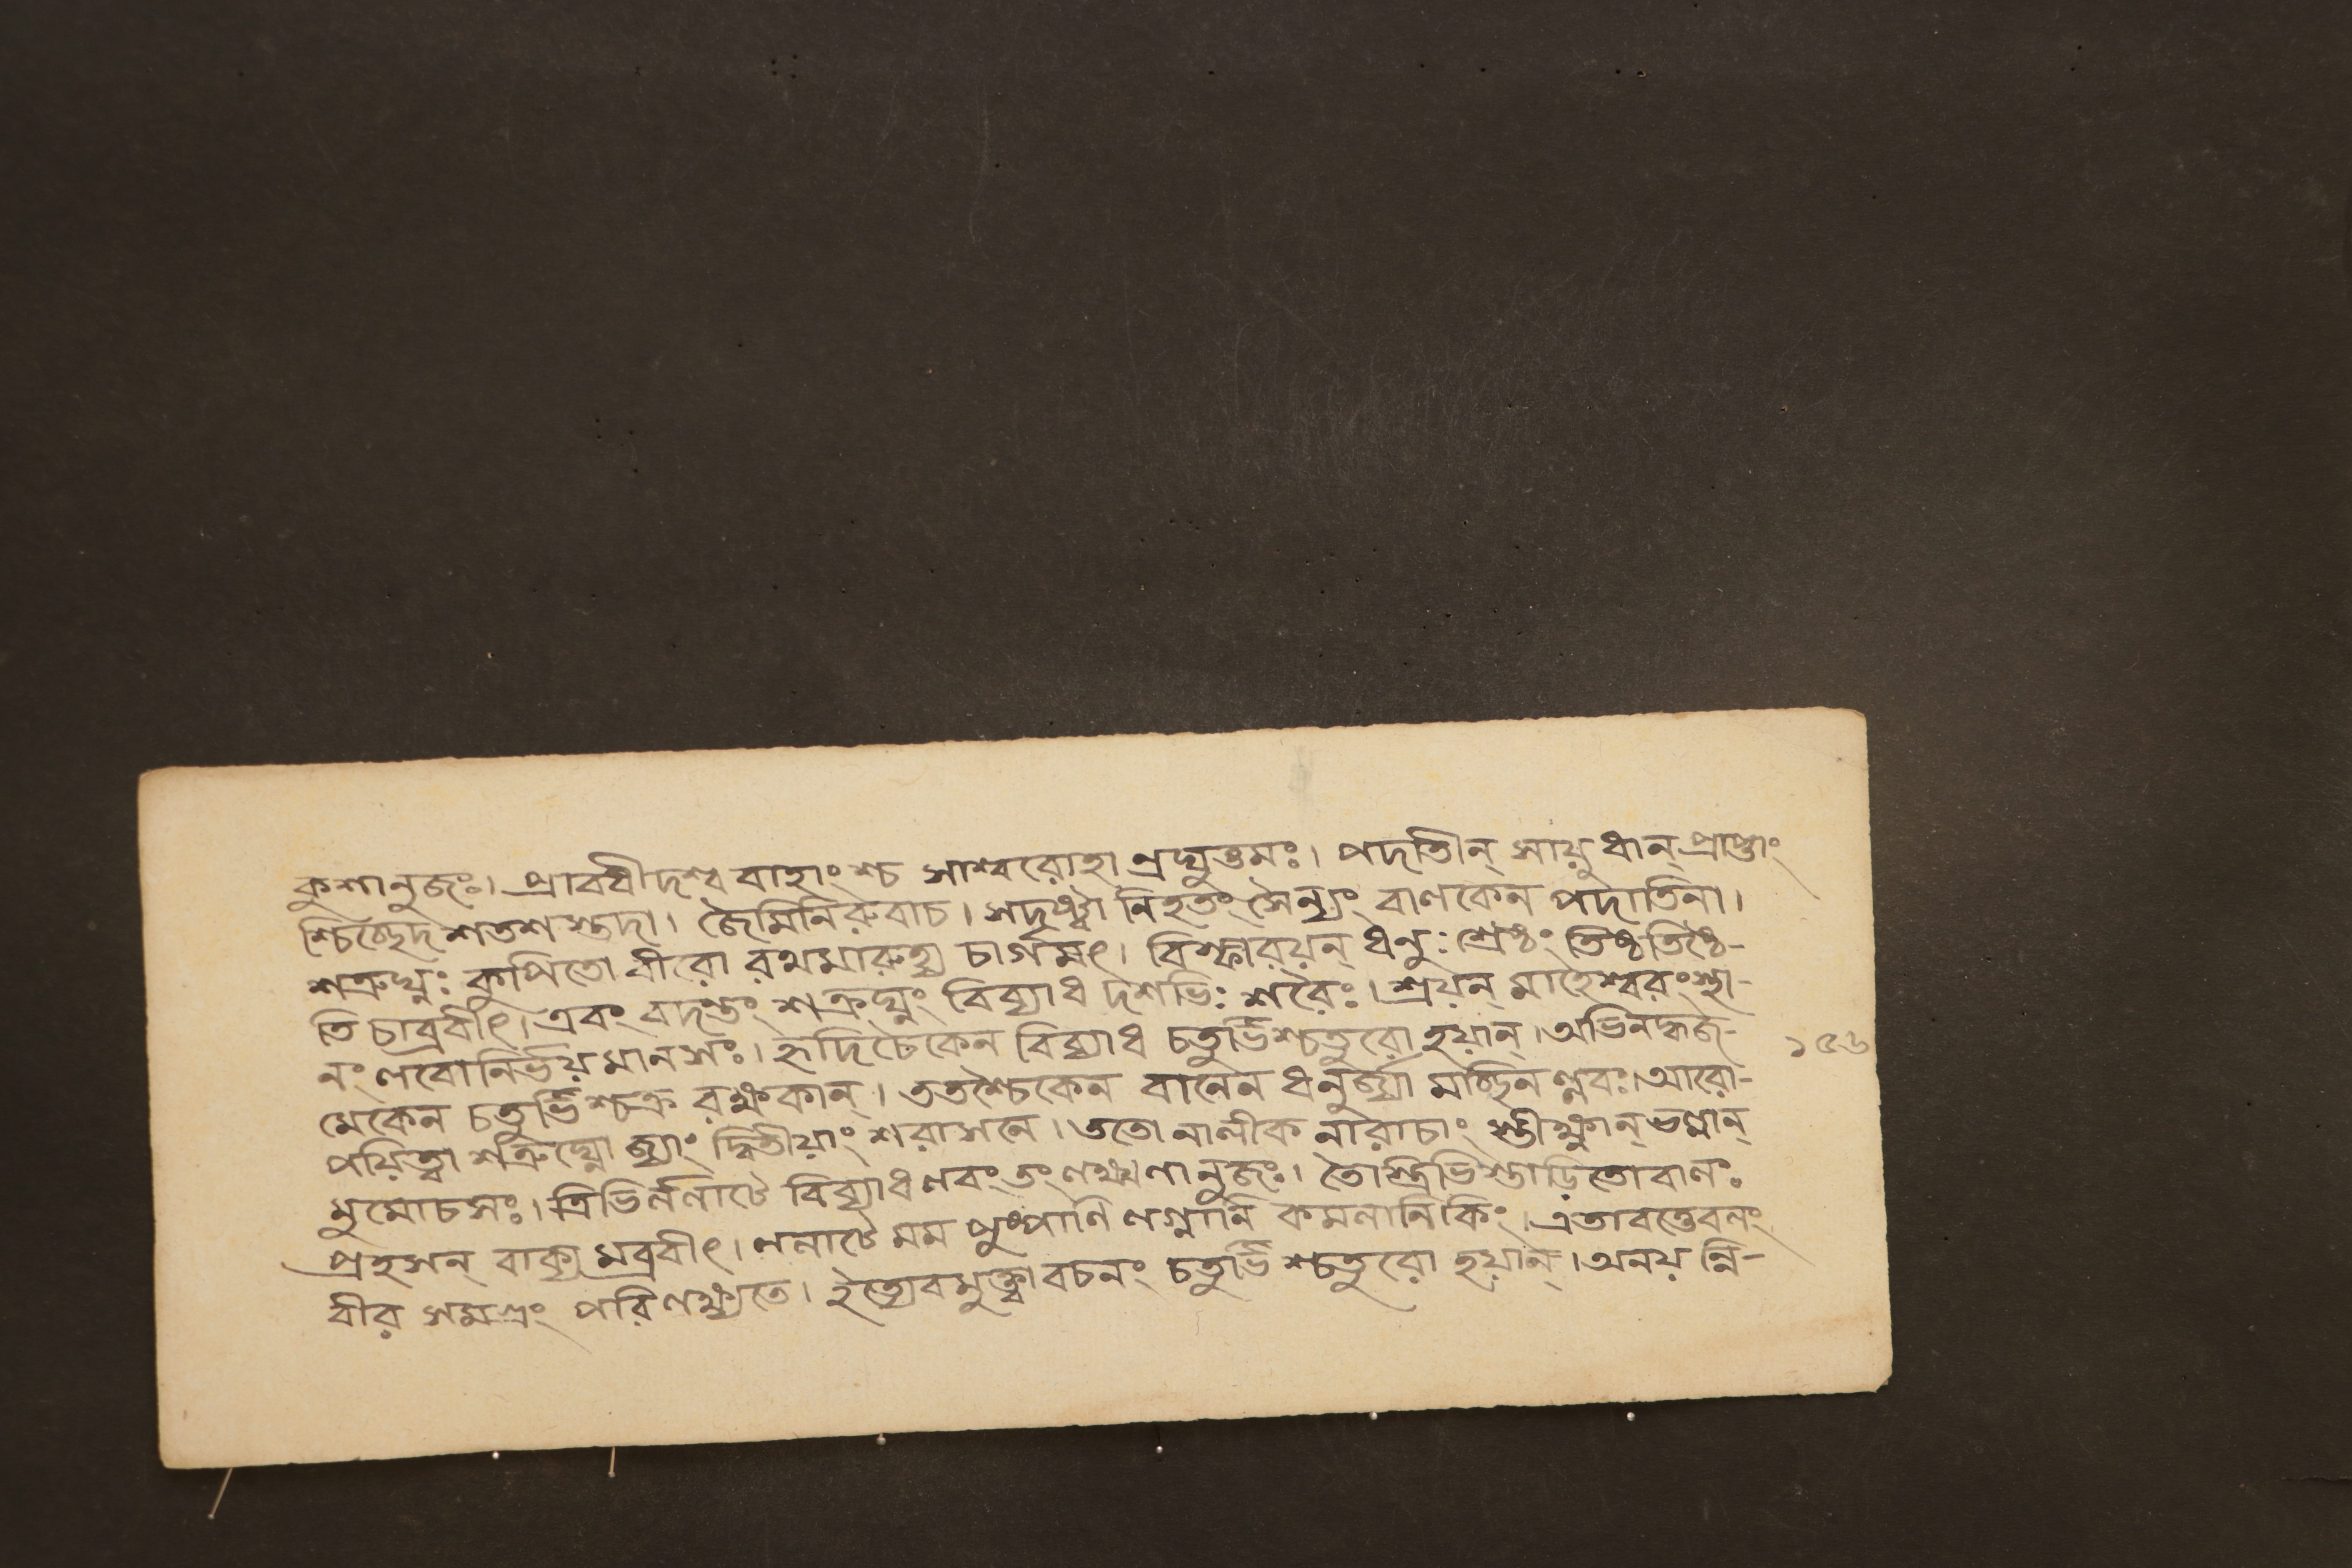 কুশানুজঃ। প্রাবধীদশ্ব বাহাংশ্চ সাশ্বরোহা ণ্রঘুত্তমঃ। পদাতীন্ সায়ুধান্ প্রাপ্তাং
শ্চিচ্ছেদ শতশ স্তদা। জৈমিনিরুবাচ। সদৃষ্ট্বা নিহতং সৈন্যং বাণকেন পদাতিনা।
শত্রুঘ্নঃ কুপিতো বীরো রথমারুহ্য চাগমৎ। বিস্ফারয়ন্ ধনুঃ শ্রেষ্ঠং তিষ্ঠতিষ্ঠে-
তি চাব্রবীৎ। এবং বদন্তং শত্রুঘ্নং বিব্যাধ দশভিঃ শরৈঃ। শ্রয়ন্ মাহেশ্বরংস্থা-
নং লবোনির্ভয়মানসঃ। হৃদিচৈকেন বিব্যাধ চতুর্ভিশ্চতুরো হয়ান্। অভিনদ্ধ্বজ-
মেকেন চতুর্ভিশ্চক্র রক্ষকান্। ততশ্চৈকেন বানেন ধনুর্জ্যা মচ্ছিনল্লবঃ। আরো-
পয়িত্বা শত্রুঘ্নো জ্যাং দ্বিতীয়াং শরাসনে। ততো নালীক নারাচাং স্তীক্ষ্ণান্ ভল্লান্
মুমোচসঃ। ত্রিভির্ললাটে বিব্যাধ লবং তং লক্ষ্মণানুজঃ। তৈস্ত্রিভিস্তাড়িতোবালঃ
প্রহসন্ বাক্য মব্রবীৎ। ললাটে মম পুষ্পাণি লগ্নানি কমলানিকিং। এতাবত্তেবলং
বীর সমগ্রং পরিলক্ষ্যতে। ইত্যেবমুক্ত্বা বচনং চতুর্ভিশ্চতুরো হয়ান্। অনয় ন্নি-
১৫৬